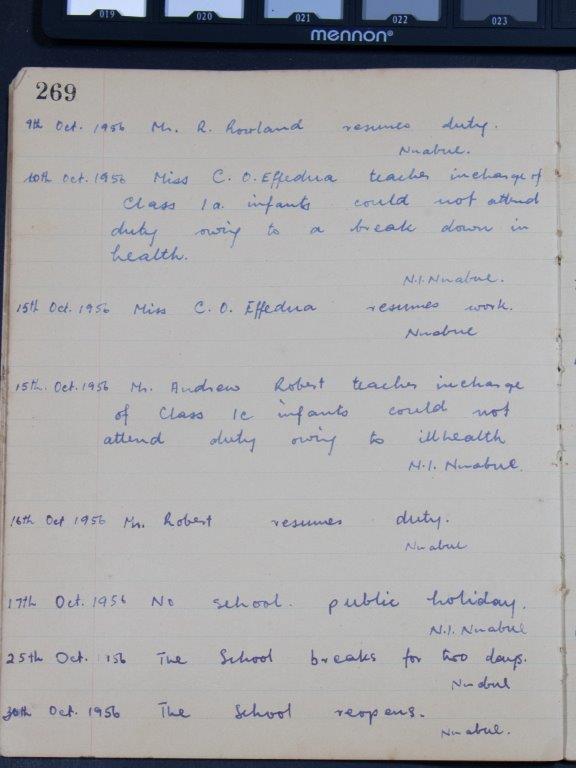 019 020 021 022 023
mennon®
269
9th Oct. 1956 Mr. R. Rowland resumes duty.
Nwabue.
10th Oct. 1956 Miss C. O. Effedua teacher incharge of
Class 1a infants could not attend
duty owing to a break down in
health.
N.I. Nwabue.
15th Oct. 1956 Miss C. O. Effedua resumes work.
Nwabue
15th. Oct. 1956 Mr. Andrew Robert teacher incharge
of Class 1c infants could not
attend duty owing to illhealth
N.I. Nwabue.
16th Oct 1956 Mr. Robert resumes duty.
Nwabue
17th Oct. 1956 No school. public holiday.
N.I. Nwabue
25th Oct. 156 The School breaks for two days.
Nwabue
30th Oct. 1956 The School reopens.
Nwabue.